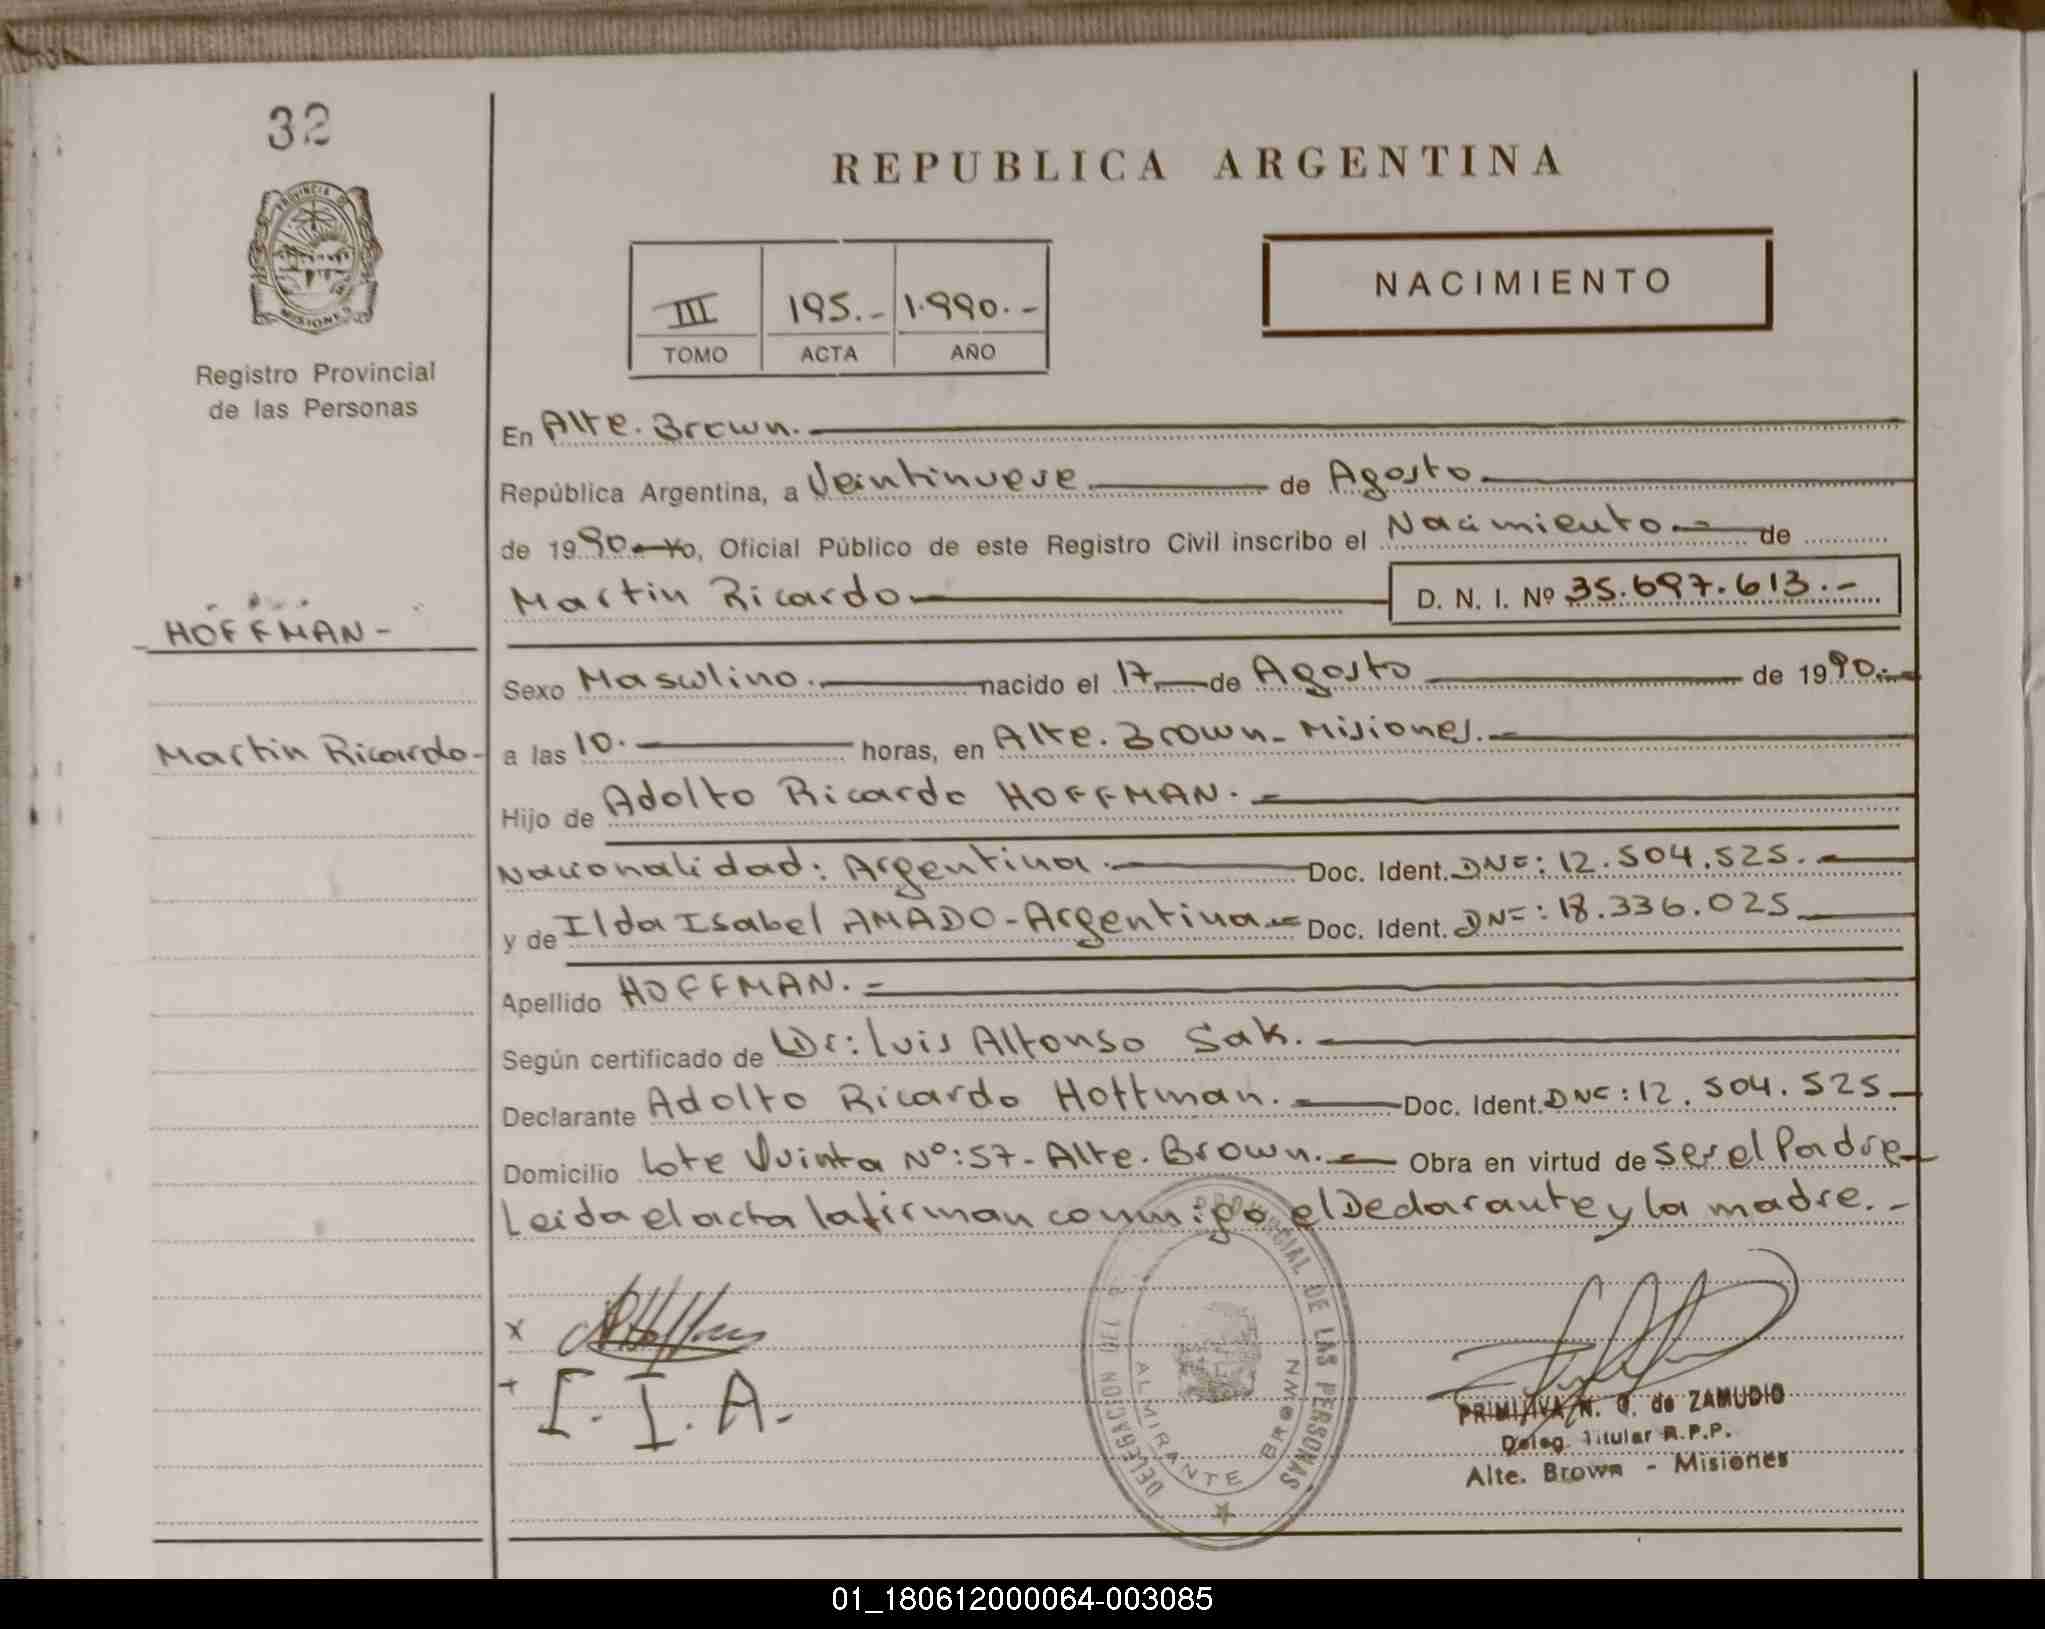 32
PROVINCIA DE
MISIONES
Registro Provincial
de las Personas
HOFFMAN-
Martin Ricardo-
REPUBLICA ARGENTINA
III 195.- 1.990.-
TOMO ACTA AÑO
NACIMIENTO
En Alte. Brown.
República Argentina, a Veintinueve de Agosto
de 1990. Yo, Oficial Público de este Registro Civil inscribo el Nacimiento de
Martin Ricardo D. N. I. Nº 35.697.613.-
Sexo Masculino. nacido el 17 de Agosto de 1990.-
a las 10. horas, en Alte. Brown - Misiones.-
Hijo de Adolfo Ricardo HOFFMAN.-
Nacionalidad: Argentina. Doc. Ident. DNI: 12.504.525.-
y de Ilda Isabel AMADO-Argentina- Doc. Ident. DNI: 18.336.025
Apellido HOFFMAN.-
Según certificado de Dr: Luis Alfonso Sak.
Declarante Adolfo Ricardo Hoffman. Doc. Ident. DNI: 12.504.525
Domicilio Lote Quinta Nº: 57- Alte. Brown.- Obra en virtud de ser el Padre
Leida el acta la firman conmigo el Declarante y la madre.-
x
+ I. I. A.-
DELEGACION DEL PROVINCIAL DE LAS PERSONAS
ALMIRANTE BROWN
PRIMITIVA N. Q. de ZAMUDIO
Deleg. Titular R.P.P.
Alte. Brown - Misiones
01_180612000064-003085